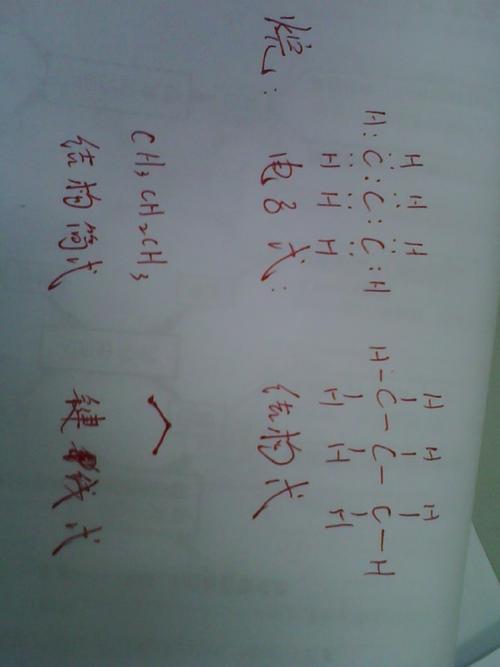 H H H H H H
H:C:C:C:H H-C-C-C-H
H H H H H H
电子式: 结构式
CH3CH2CH3
结构简式 键线式